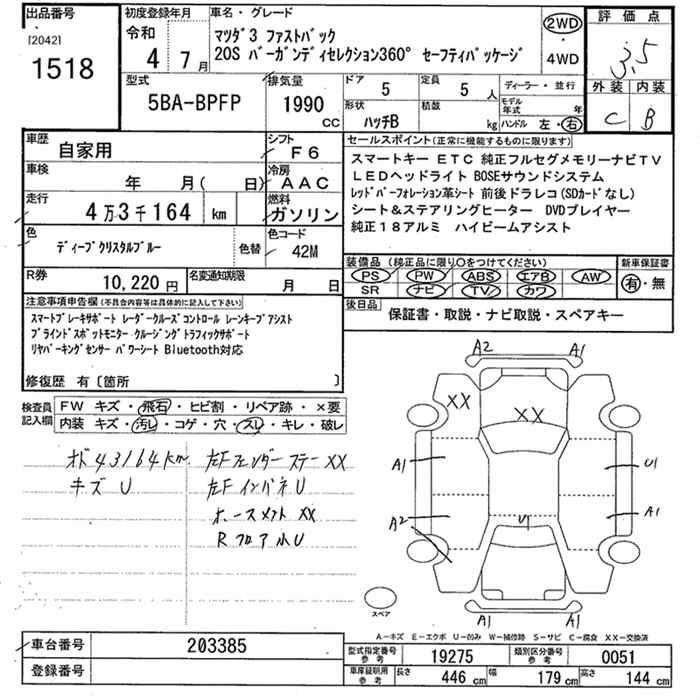 出品番号
[2042]
1518
初度登録年月
令和
4 7月
車名・グレード
マツダ3 ファストバック
20S バーガンディセレクション360° セーフティパッケージ
2WD
4WD
評価点
3.5
外装 内装
C B
型式
5BA-BPFP
排気量
1990
CC
ドア
5
定員
5 人
形状
ハッチB
積載
kg
ディーラー・並行
モデル年式 年
ハンドル 左・右
車歴
自家用
シフト
F6
車検
年 月( 日)
冷房
AAC
走行
4万3千164 km
燃料
ガソリン
色
ディープクリスタルブルー
色替
色コード
42M
R券
10,220円
名変通知期限
月 日
セールスポイント(正常に機能するものに限ります)
スマートキー ETC 純正フルセグメモリーナビTV
LEDヘッドライト BOSEサウンドシステム
レッドパーフォレーション革シート 前後ドラレコ(SDカードなし)
シート&ステアリングヒーター DVDプレイヤー
純正18アルミ ハイビームアシスト
装備品(純正品に限り○をつけてください)
PS PW ABS エアB AW
SR ナビ TV カワ
新車保証書
有・無
後日品
保証書・取説・ナビ取説・スペアキー
注意事項申告欄(不具合内容等は具体的に記入して下さい)
スマートブレーキサポート レーダークルーズコントロール レーンキープアシスト
ブラインドスポットモニター クルージングトラフィックサポート
リヤパーキングセンサー パワーシート Bluetooth対応
修復歴 有〔箇所 〕
検査員
記入欄
FW キズ・飛石・ヒビ割・リペア跡・×要
内装 キズ・汚レ・コゲ・穴・スレ・キレ・破レ
オド43164km
キズ U
左Fフェンダーステー XX
左FインパネU
ホースメント XX
RフロアホU
A2 A1
XX
XX
A1
U1
A2
A1
U1
A1 A1
スペア
A-キズ E-エクボ U-凹み W-補修跡 S-サビ C-腐食 XX-交換済
車台番号
203385
登録番号
型式指定番号
参考
19275
類別区分番号
参考
0051
車庫証明用
参考
長さ 446 cm
幅 179 cm
高さ 144 cm